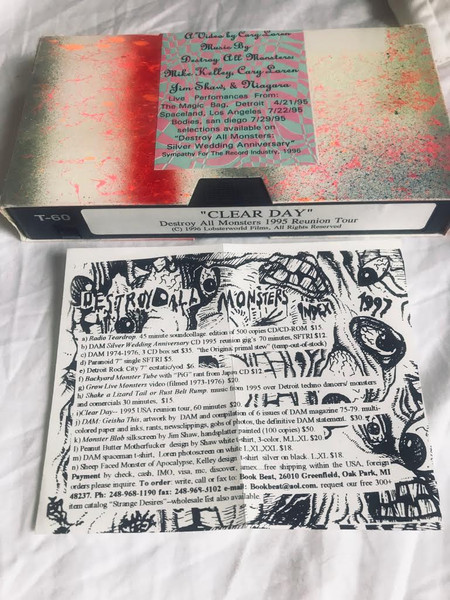 A Video by Cary Loren
Music By
Destroy All Monsters:
Mike Kelley, Cary Loren
Jim Shaw, & Niagara
Live Perfomances From:
The Magic Bag, Detroit 4/21/95
Spaceland, Los Angeles 7/22/95
Bodies, san diego 7/29/95
selections available on
"Destroy All Monsters:
Silver Wedding Anniversary"
Sympathy For The Record Industry, 1996
T-60
"CLEAR DAY"
Destroy All Monsters 1995 Reunion Tour
(C) 1996 Lobsterworld Films, All Rights Reserved
DESTROY ALL MONSTERS INDEX 1997
a) Radio Teardrop. 45 minute soundcollage. edition of 500 copies CD/CD-ROM $15.
b) DAM Silver Wedding Anniversary CD 1995 reunion gig's 70 minutes, SFTRI $12.
c) DAM 1974-1976, 3 CD box set $35. "the Origins: primal stew" (temp-out-of-stock)
d) Paranoid 7" single SFTRI $5.
e) Detroit Rock City 7" ecstatic/yod $6.
f) Backyard Monster Tube with "PiG" rant from Japan CD $12
g) Grow Live Monsters video (filmed 1973-1976) $20.
h) Shake a Lizard Tail or Rust Belt Rump. music from 1995 over Detroit techno dancers/ monsters
and comercials 30 minutes, $15.
i)Clear Day-- 1995 USA reunion tour, 60 minutes $20.
j) DAM: Geisha This, artwork by DAM and compilation of 6 issues of DAM magazine 75-79. multi-
colored paper and inks, rants, newsclippings, gobs of photos, the definitive DAM statement. $30.
k) Monster Blob silkscreen by Jim Shaw, handsplatter painted (100 copies) $50.
l) Peanut Butter Motherfucker design by Shaw white t-shirt, 3-color, M,L,XL $20
m) DAM spaceman t-shirt, Loren photoscreen on white L.XL.XXL $18.
n) Sheep Faced Monster of Apocalypse, Kelley design t-shirt silver on black. L.XL. $18.
Payment by check, cash, IMO, visa, mc, discover, amex...free shipping within the USA, foreign
orders please inquire. To order: write, call or fax to: Book Beat, 26010 Greenfield, Oak Park, MI
48237. Ph: 248-968-1190 fax: 248-968-3102 e-mail: Bookbeat@aol.com. request our free 300+
item catalog "Strange Desires"--wholesale list also available.